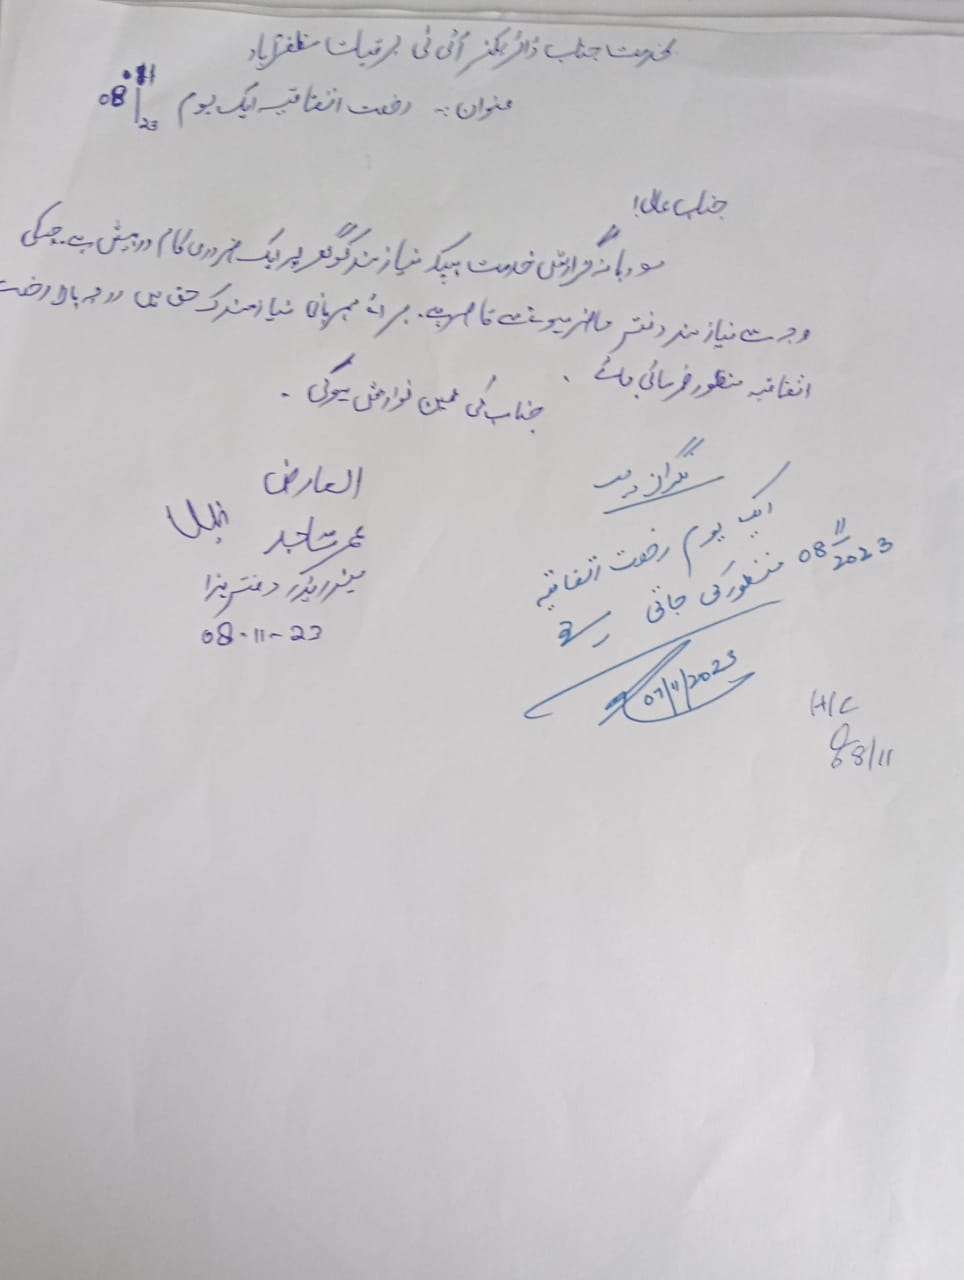 بخدمت جناب ڈائریکٹر آئی ٹی برقیات مظفرآباد
عنوان :۔ رخصت اتفاقیہ ایک یوم 08/11/23
جناب عالی!
مودبانہ گزارش خدمت ہیکہ نیازمند کو گھر پر ایک ضروری کام درپیش ہے۔ جسکی
وجہ سے نیازمند دفتر حاضر ہونے سے قاصر ہے۔ برائے مہربانی نیازمند کے حق میں درجہ بالا رخصت
اتفاقیہ منظور فرمائی جائے۔
جناب کی عین نوازش ہوگی۔
العارض
عمر ساجد
میٹر ریڈر دفتر ہذا
08-11-23
نگران
ایک یوم رخصت اتفاقیہ
08/11/2023 منظور کی جاتی ہے
07/11/2023
H/C
08/11